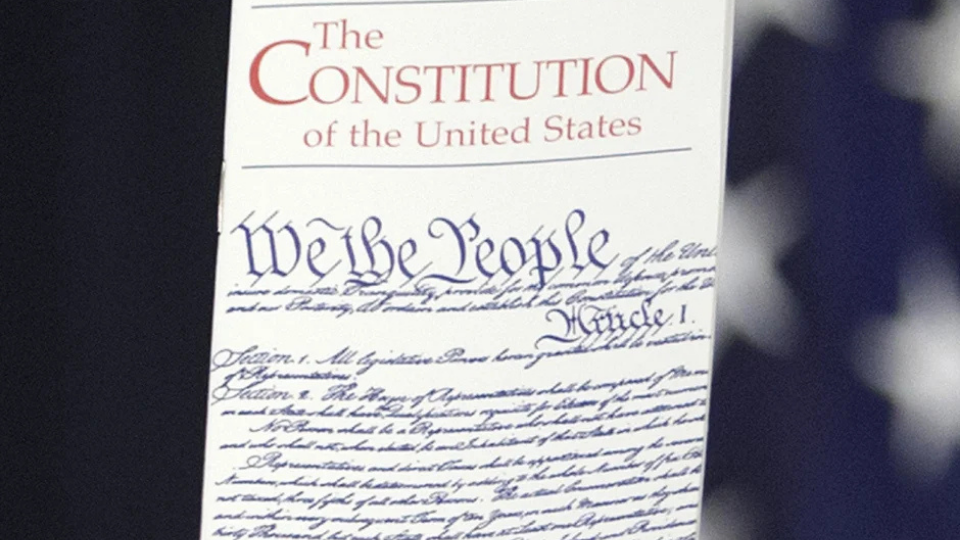 The
CONSTITUTION
of the United States
We the People of the Unit
insure domestic Tranquility, provide for the common defence, promo
and our Posterity, do ordain and establish this Constitution for the Un
Article I.
Section 1. All legislative Powers herein granted shall be vested in
of Representatives.
Section 2. The House of Representatives shall be composed of Mem
in each State shall have Qualifications requisite for Electors of the most numero
No Person shall be a Representative who shall not have attained to
and who shall not, when elected, be an Inhabitant of that State in which he
Representatives and direct Taxes shall be apportioned among the
Numbers, which shall be determined by adding to the whole Number of free
not taxed, three fifths of all other Persons. The actual Enumeration shall be
and within every subsequent Term of ten Years, in such Manner as they shall
thirty Thousand, but each State shall have at Least one Representative; and